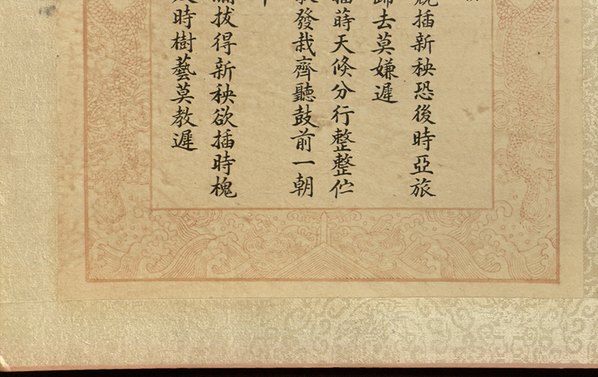 插新秧恐後時亞旅
歸去莫嫌遲
插蒔天倏分行整整伫
發栽齊聽鼓前一朝
拔得新秧欲插時槐
時樹藝莫教遲